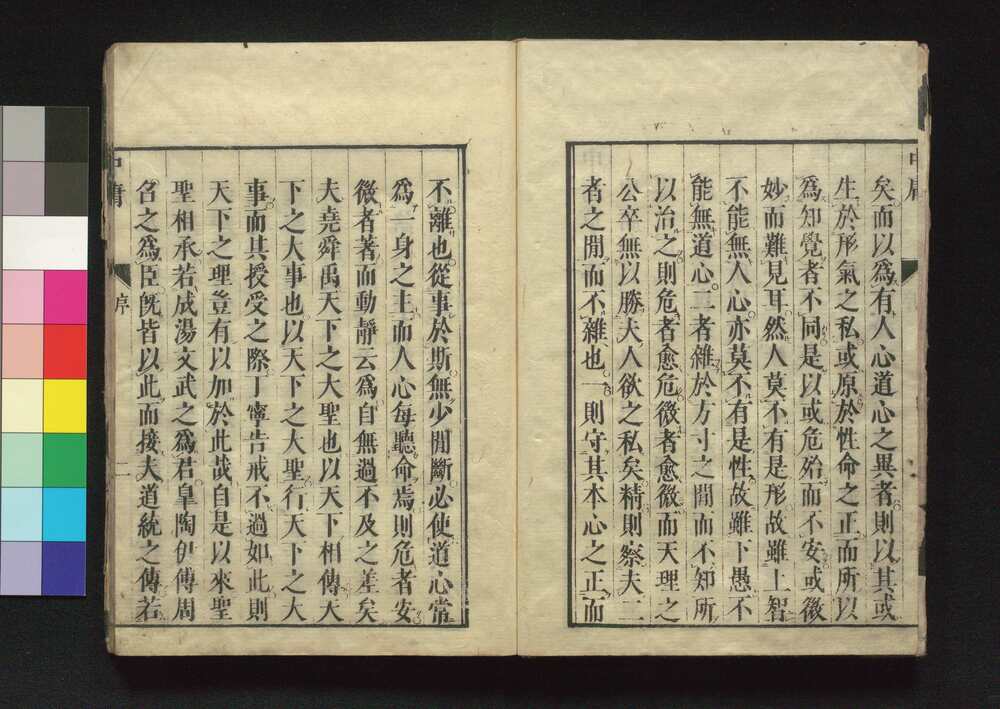 中庸
矣而以爲有人心道心之異者則以其或
生於形氣之私或原於性命之正而所以
爲知覺者不同是以或危殆而不安或微
妙而難見耳然人莫不有是形故雖上智
不能無人心亦莫不有是性故雖下愚不
能無道心二者雜於方寸之閒而不知所
以治之則危者愈危微者愈微而天理之
公卒無以勝夫人欲之私矣精則察夫二
者之閒而不雜也一則守其本心之正而
不離也從事於斯無少閒斷必使道心常
爲一身之主而人心每聽命焉則危者安
微者著而動靜云爲自無過不及之差矣
夫堯舜禹天下之大聖也以天下相傳天
下之大事也以天下之大聖行天下之大
事而其授受之際丁寧告戒不過如此則
天下之理豈有以加於此哉自是以來聖
聖相承若成湯文武之爲君皐陶伊傅周
召之爲臣旣皆以此而接夫道統之傳若
中庸 序 二